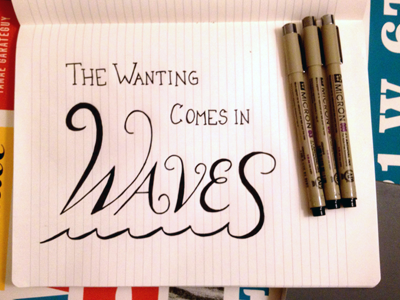 THE WANTING
COMES IN
WAVES
MICRON
MICRON
MICRON